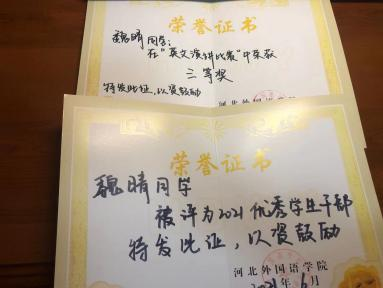 荣誉证书
魏晴同学:
在"英文演讲比赛"中荣获
三等奖
特发此证,以资鼓励
荣誉证书
魏晴同学
被评为2021优秀学生干部
特发此证,以资鼓励
河北外国语学院
2021年6月